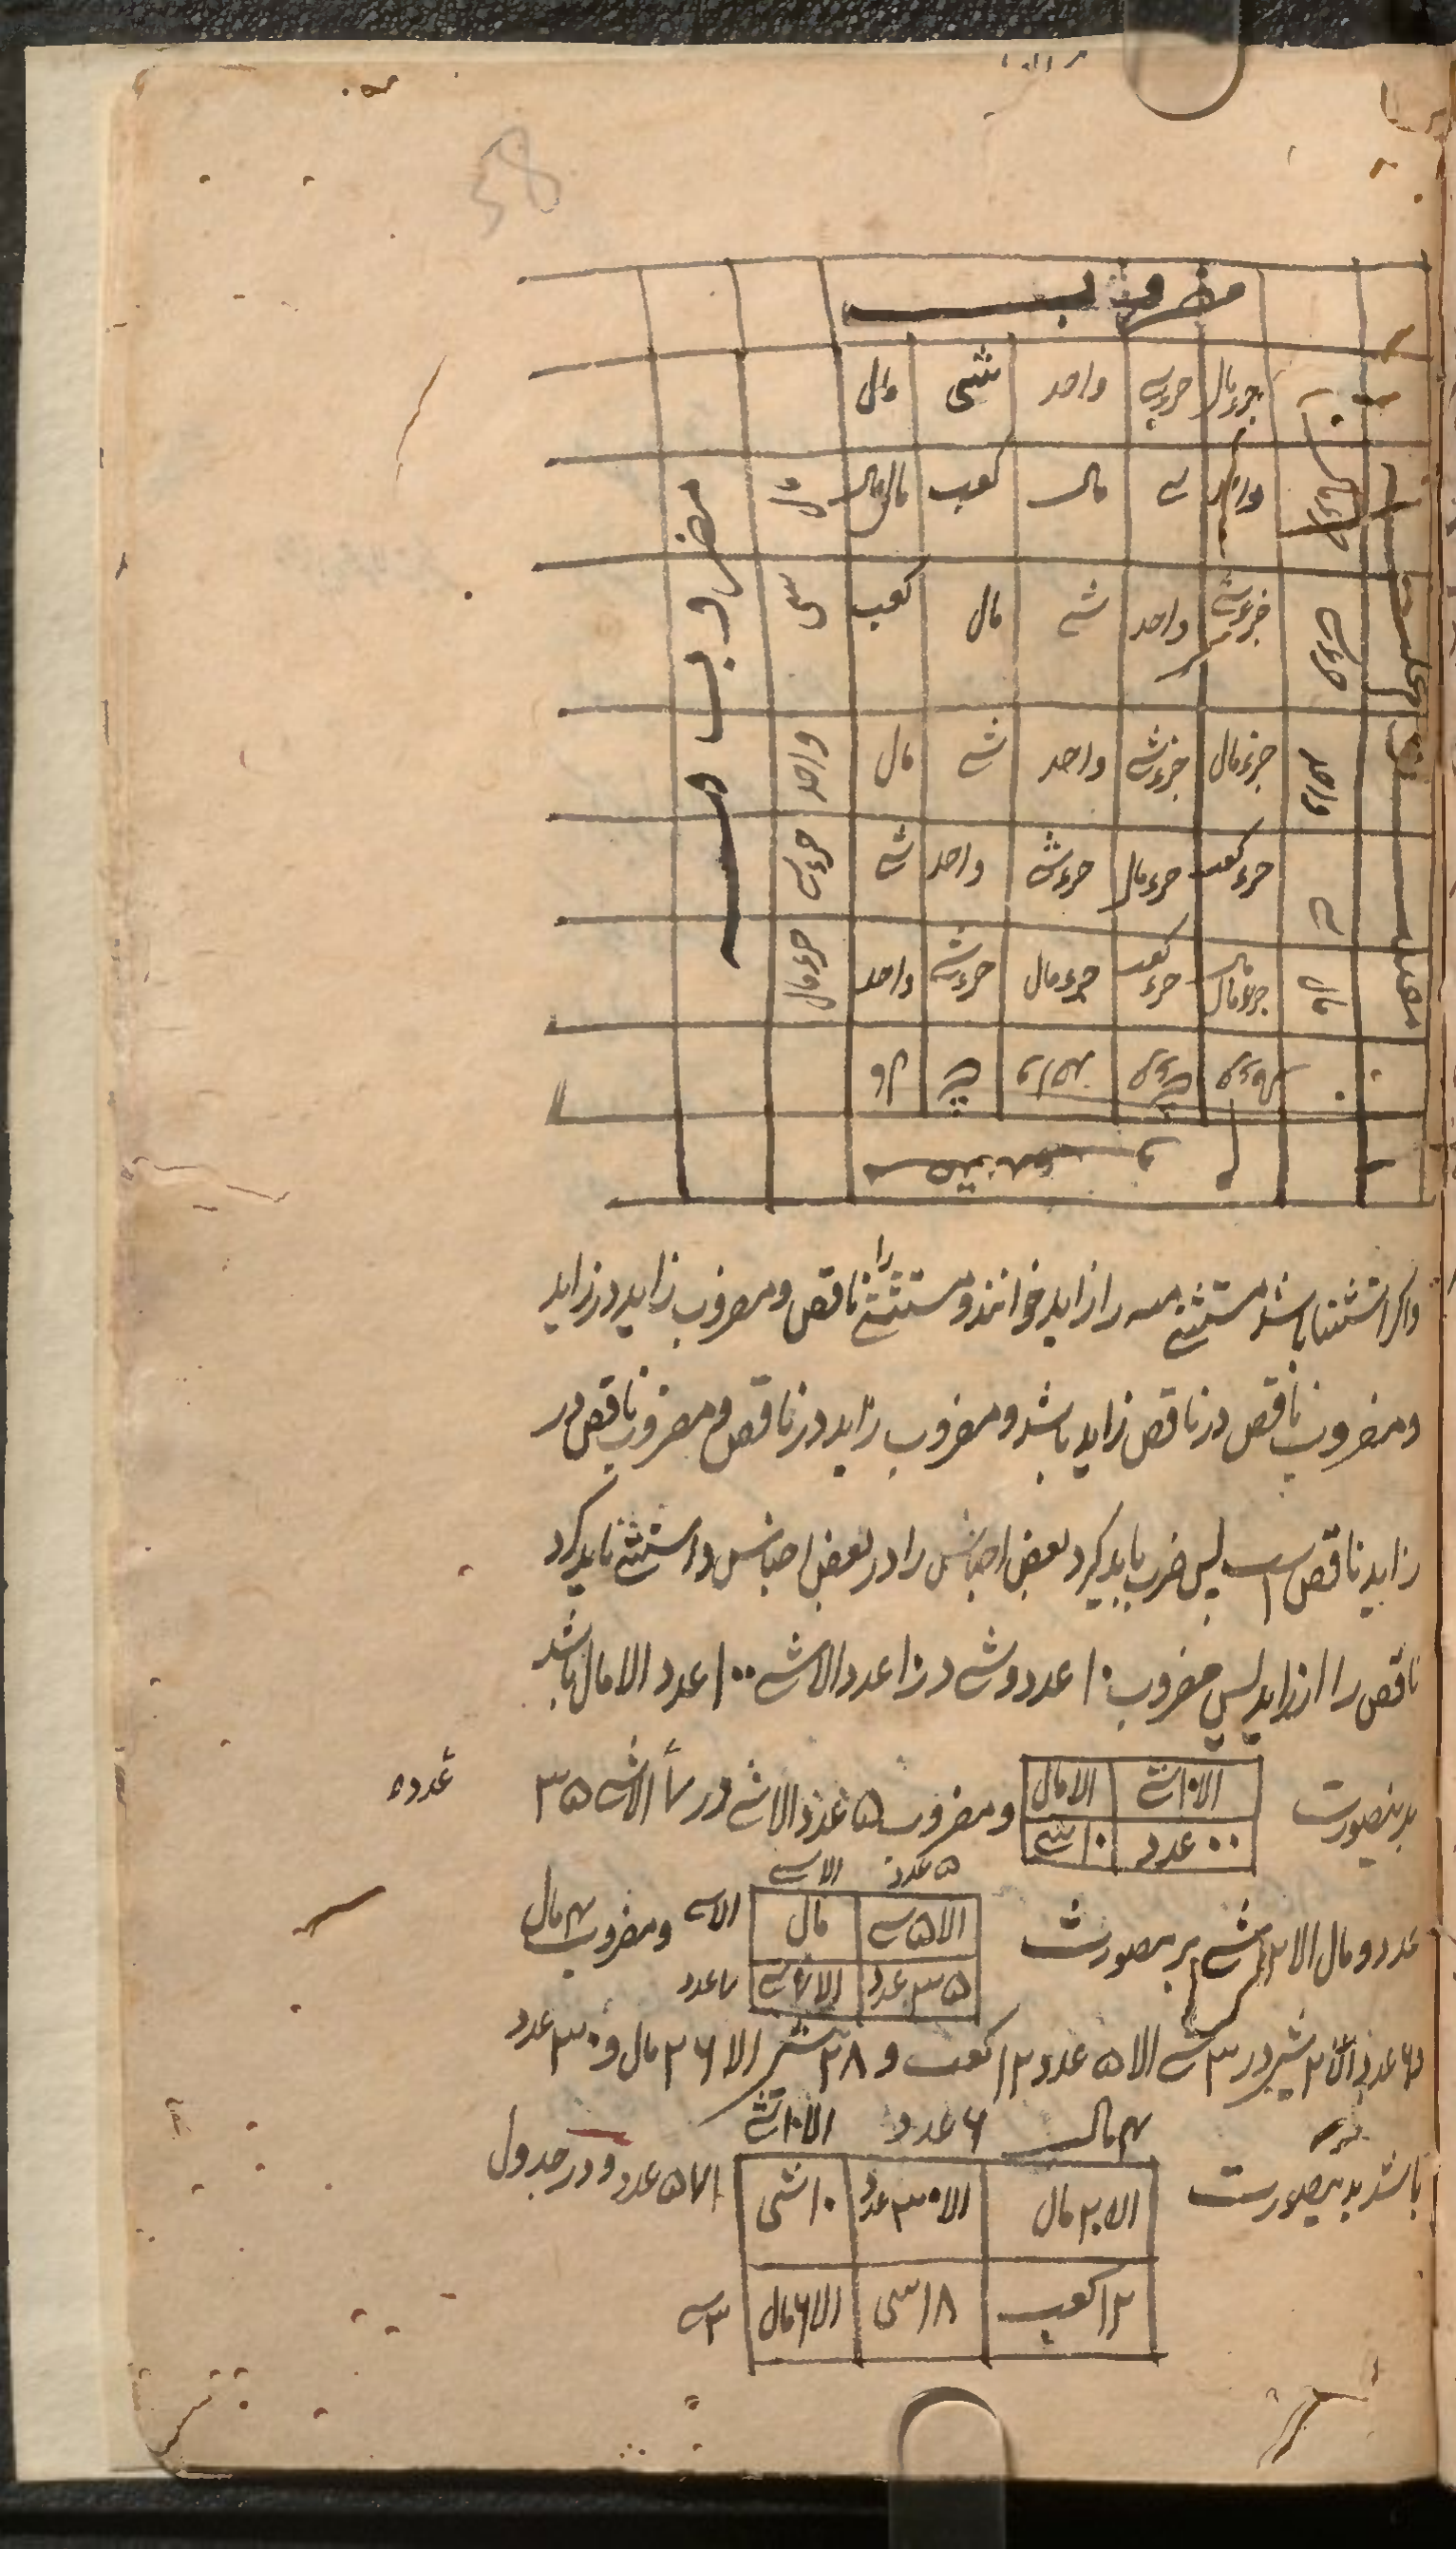 58
مضروب
جزءمال جزءشے واحد شی مال
واحد شے مال کعب مال‌مال مال
جزءشے واحد شے مال کعب شی
جزءمال جزءشے واحد شے مال واحد
جزءکعب جزءمال جزءشے واحد شے جزءشے
جزءمال‌مال جزءکعب جزءمال جزءشے واحد جزءمال
مضروب فیه
واکر استثنا باشد مستثنی منه را زاید خوانند و مستثنی را ناقص و مضروب زاید در زاید
و مضروب ناقص در ناقص زاید باشد و مضروب زاید در ناقص و مضروب ناقص در
زاید ناقص است پس ضرب باید کرد بعض اجناس را در بعض اجناس و استثنے باید کرد
ناقص را از زاید پس مضروب ۱۰ عدد و شے در ۱۰ عدد الا شے ۱۰۰ عدد الا مال باشد
بدینصورت
الا ۱۰ شے الا مال
۱۰۰ عدد ۱۰ شے
و مضروب ۵ عدد الا شے در ۷ الا شے ۳۵
عدده
۵ عدد الا شے
عدد و مال الا ۱۲ شے بدینصورت
الا ۵ شے مال الا شے
۳۵ عدد الا ۷ شے ۷ عدد
و مضروب ۴ مال
و ۶ عدد الا ۲ شے در ۳ شے الا ۵ عدد ۱۲ کعب و ۲۸ شے الا ۲۶ مال و ۳۰ عدد
۴ مال ۶ عدد الا ۲ شے
باشد بدینصورت
الا ۲۰ مال الا ۳۰ عدد ۱۰ شی الا ۵ عدد و در جدول
۱۲ کعب ۱۸ شی الا ۶ مال ۳ شے